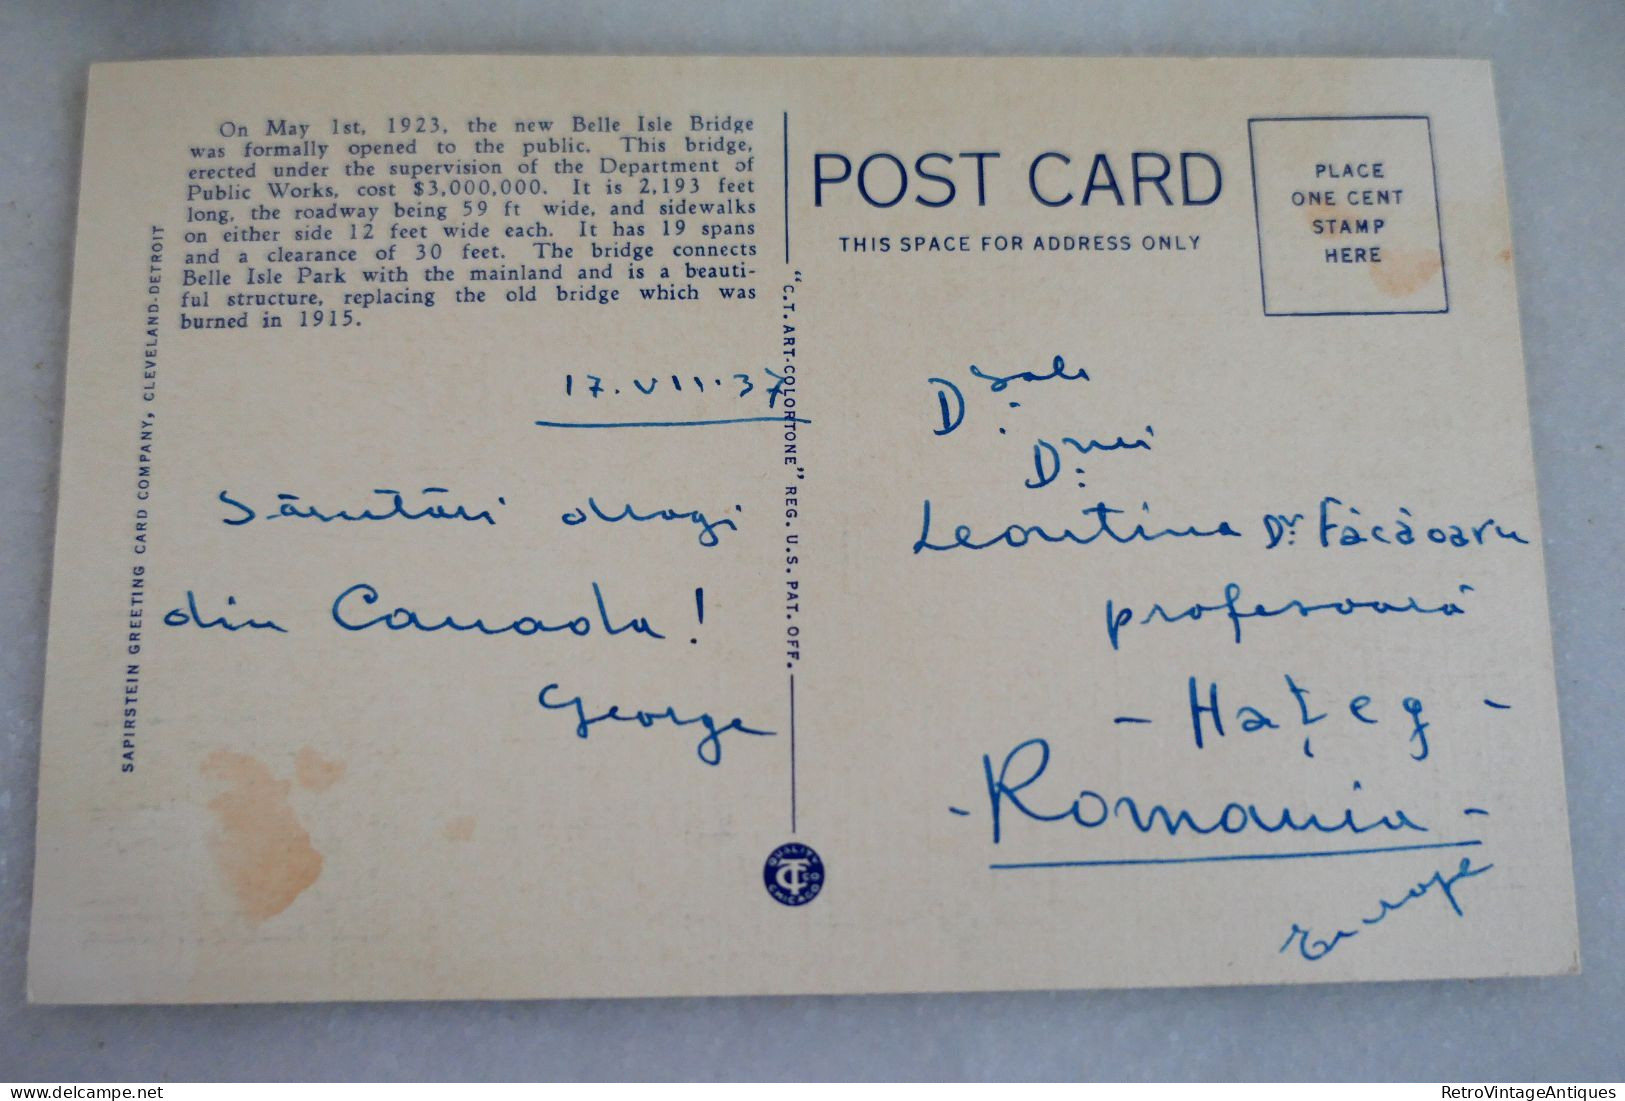 On May 1st, 1923, the new Belle Isle Bridge
was formally opened to the public. This bridge,
erected under the supervision of the Department of
Public Works, cost $3,000,000. It is 2,193 feet
long, the roadway being 59 ft wide, and sidewalks
on either side 12 feet wide each. It has 19 spans
and a clearance of 30 feet. The bridge connects
Belle Isle Park with the mainland and is a beauti-
ful structure, replacing the old bridge which was
burned in 1915.
SAPIRSTEIN GREETING CARD COMPANY, CLEVELAND-DETROIT
17.VII.37
Sărutări dragi
din Canada!
George
"C.T. ART-COLORTONE" REG. U.S. PAT. OFF.
QUALITY
CT
CHICAGO
POST CARD
THIS SPACE FOR ADDRESS ONLY
PLACE
ONE CENT
STAMP
HERE
D sale
D nei
Leontina Dr. Făcăoaru
profesoară
- Haţeg -
- Romania -
Europe
RetroVintageAntiques